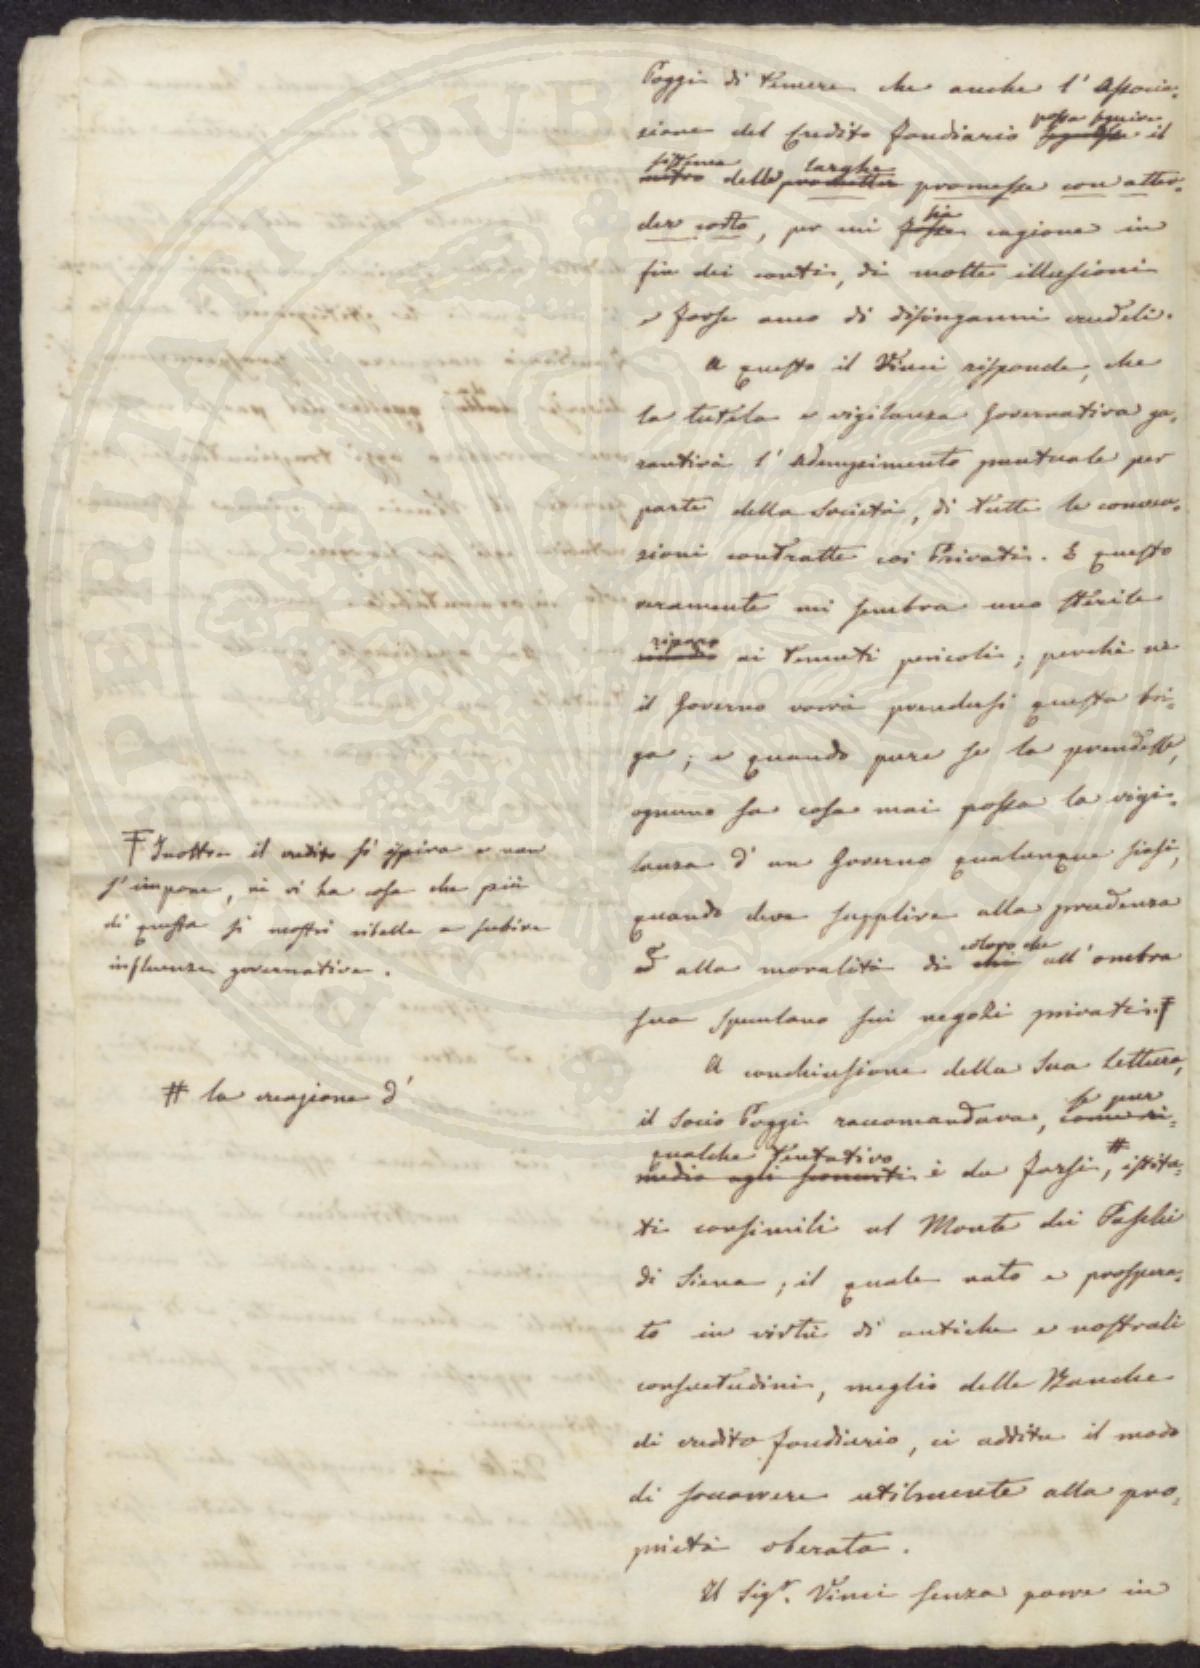 Poggi di temere che anche l'Associa-
zione del Credito fondiario possa seguire il
sistema delle larghe promesse con atten-
der corto, per cui sia cagione in
fin dei conti, di molte illusioni
e forse anco di disinganni crudeli.
A questo il Vinci risponde, che
la tutela e vigilanza governativa ga-
rantirà l'adempimento puntuale per
parte della Società, di tutte le convea-
zioni contratte coi Privati. E questo
veramente mi sembra uno sterile
riparo ai temuti pericoli; perchè nè
il Governo vorrà prendersi questa bri-
ga; e quando pure se la prendesse,
ognuno sa cosa mai possa la vigi-
lanza d'un Governo qualunque siasi,
quando deve supplire alla prudenza
e alla moralità di coloro che all'ombra
sua speculano sui negozi privati. Ŧ
Ŧ Inoltre il credito si ispira e non
s'impone, nè vi ha cosa che più
di questa si mostri ribelle a subire
influenze governative.
A conchiusione della sua lettura,
il Socio Poggi raccomandava, se pur
qualche tentativo è da farsi, # istitu-
# la creazione d'
ti consimili al Monte dei Paschi
di Siena, il quale nato e prospera-
to in virtù di antiche e nostrali
consuetudini, meglio delle Banche
di credito fondiario, ci addita il modo
di soccorrere utilmente alla pro-
prietà oberata.
Il Sigr. Vinci senza porre in